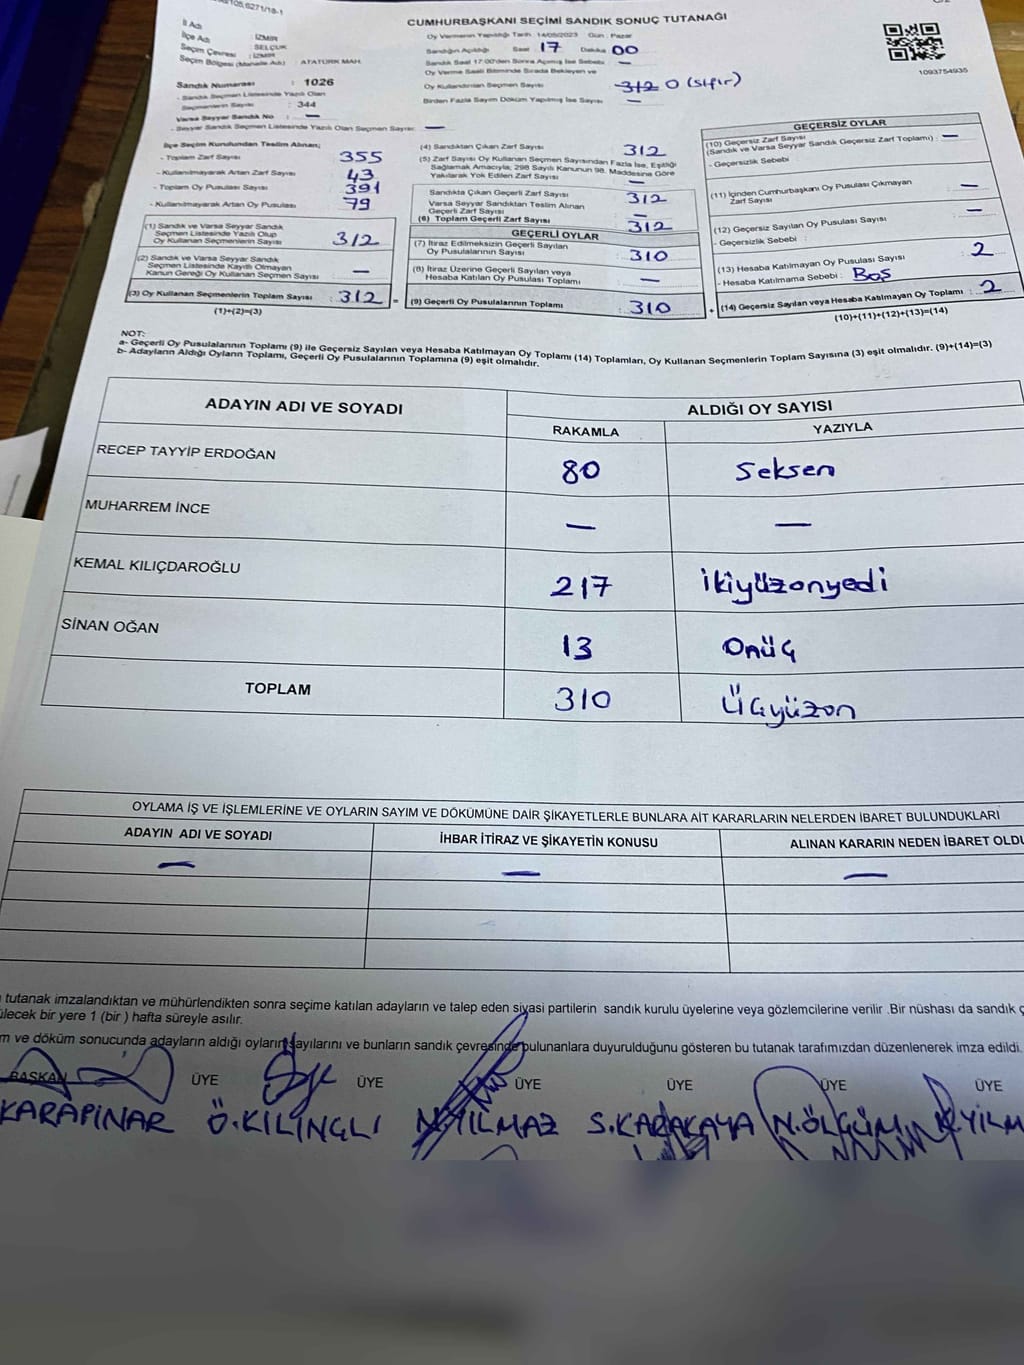 CUMHURBAŞKANI SEÇİMİ SANDIK SONUÇ TUTANAĞI
İl Adı : İZMİR
İlçe Adı : SELÇUK
Seçim Çevresi : İZMİR
Seçim Bölgesi (Mahalle Adı) : ATATÜRK MAH.
Sandık Numarası : 1026
- Sandık Seçmen Listesinde Yazılı Olan
Seçmenlerin Sayısı : 344
Varsa Seyyar Sandık No : —
- Seyyar Sandık Seçmen Listesinde Yazılı Olan Seçmen Sayısı: —
Oy Vermenin Yapıldığı Tarih : 14/05/2023 Gün : Pazar
Sandığın Açıldığı Saat 17 Dakika 00
Sandık Saat 17:00'den Sonra Açımış İse Sebebi : —
Oy Verme Saati Bitiminde Sırada Bekleyen ve
Oy Kullandırılan Seçmen Sayısı : 312 0 (sıfır)
Birden Fazla Sayım Döküm Yapılmış İse Sayısı : —
1093754935
İlçe Seçim Kurulundan Teslim Alınan;
- Toplam Zarf Sayısı 355
- Kullanılmayarak Artan Zarf Sayısı 43
- Toplam Oy Pusulası Sayısı : 391
- Kullanılmayarak Artan Oy Pusulası 79
(1) Sandık ve Varsa Seyyar Sandık
Seçmen Listesinde Yazılı Olup
Oy Kullanan Seçmenlerin Sayısı : 312
(2) Sandık ve Varsa Seyyar Sandık
Seçmen Listesinde Kayıtlı Olmayan
Kanun Gereği Oy Kullanan Seçmen Sayısı : —
(3) Oy Kullanan Seçmenlerin Toplam Sayısı : 312 =
(1)+(2)=(3)
(4) Sandıktan Çıkan Zarf Sayısı 312
(5) Zarf Sayısı Oy Kullanan Seçmen Sayısından Fazla İse, Eşitliği
Sağlamak Amacıyla, 298 Sayılı Kanunun 98. Maddesine Göre
Yakılarak Yok Edilen Zarf Sayısı —
Sandıkta Çıkan Geçerli Zarf Sayısı : 312
Varsa Seyyar Sandıktan Teslim Alınan
Geçerli Zarf Sayısı —
(6) Toplam Geçerli Zarf Sayısı : 312
GEÇERLİ OYLAR
(7) İtiraz Edilmeksizin Geçerli Sayılan
Oy Pusulalarının Sayısı : 310
(8) İtiraz Üzerine Geçerli Sayılan veya
Hesaba Katılan Oy Pusulası Toplamı : —
(9) Geçerli Oy Pusulalarının Toplamı : 310 +
GEÇERSİZ OYLAR
(10) Geçersiz Zarf Sayısı
(Sandık ve Varsa Seyyar Sandık Geçersiz Zarf Toplamı) : —
- Geçersizlik Sebebi
(11) İçinden Cumhurbaşkanı Oy Pusulası Çıkmayan
Zarf Sayısı —
(12) Geçersiz Sayılan Oy Pusulası Sayısı —
- Geçersizlik Sebebi :
(13) Hesaba Katılmayan Oy Pusulası Sayısı : 2
- Hesaba Katılmama Sebebi : Boş
(14) Geçersiz Sayılan veya Hesaba Katılmayan Oy Toplamı : 2
(10)+(11)+(12)+(13)=(14)
NOT:
a- Geçerli Oy Pusulalarının Toplamı (9) ile Geçersiz Sayılan veya Hesaba Katılmayan Oy Toplamı (14) Toplamları, Oy Kullanan Seçmenlerin Toplam Sayısına (3) eşit olmalıdır. (9)+(14)=(3)
b- Adayların Aldığı Oyların Toplamı, Geçerli Oy Pusulalarının Toplamına (9) eşit olmalıdır.
ADAYIN ADI VE SOYADI ALDIĞI OY SAYISI
RAKAMLA YAZIYLA
RECEP TAYYİP ERDOĞAN 80 Seksen
MUHARREM İNCE — —
KEMAL KILIÇDAROĞLU 217 ikiyüzonyedi
SİNAN OĞAN 13 Onüç
TOPLAM 310 Üçyüzon
OYLAMA İŞ VE İŞLEMLERİNE VE OYLARIN SAYIM VE DÖKÜMÜNE DAİR ŞİKAYETLERLE BUNLARA AİT KARARLARIN NELERDEN İBARET BULUNDUKLARI
ADAYIN ADI VE SOYADI İHBAR İTİRAZ VE ŞİKAYETİN KONUSU ALINAN KARARIN NEDEN İBARET OLDU
— — —
tutanak imzalandıktan ve mühürlendikten sonra seçime katılan adayların ve talep eden siyasi partilerin sandık kurulu üyelerine veya gözlemcilerine verilir .Bir nüshası da sandık
bir yere 1 (bir ) hafta süreyle asılır.
m ve döküm sonucunda adayların aldığı oyların sayılarını ve bunların sandık çevresinde bulunanlara duyurulduğunu gösteren bu tutanak tarafımızdan düzenlenerek imza edildi.
BAŞKAN ÜYE ÜYE ÜYE ÜYE ÜYE ÜYE
KARAPINAR Ö.KILINÇLI N.YILMAZ S.KARAKAYA N.ÖLGÜM K.YILM